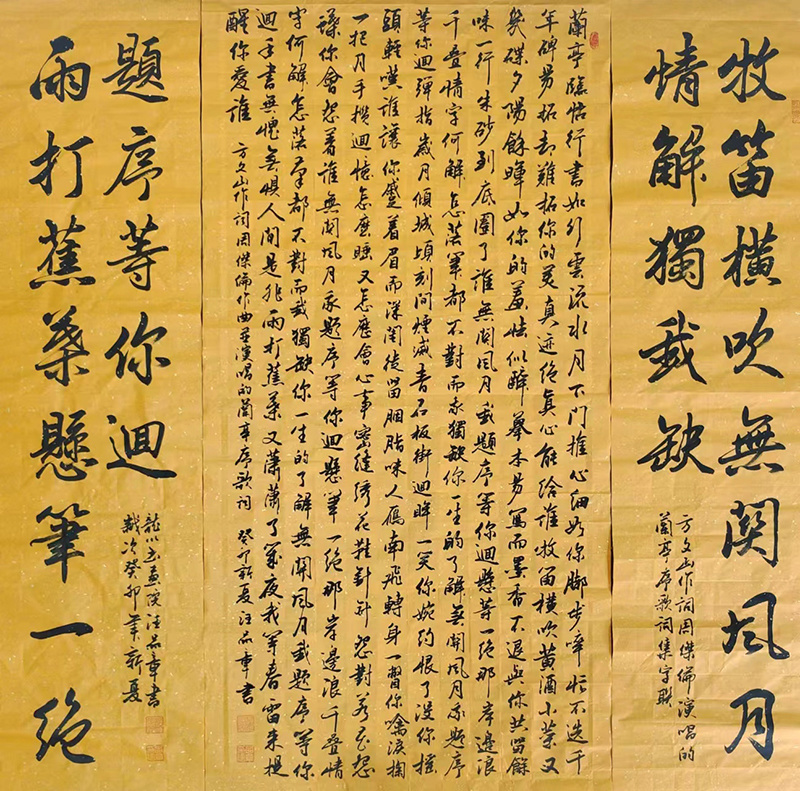 牧笛橫吹無関風月
情解獨我缺
方文山作詞周傑倫演唱的
蘭亭序歌詞集字聯
蘭亭臨帖行書如行雲流水月下門推心細如你腳步碎忙不迭千
年碑易拓却難拓你的美真迹絕真心能給誰牧笛橫吹黃酒小菜又
幾碟夕陽餘暉如你的羞怯似醉摹本易寫而墨香不退與你共留餘
味一行朱砂到底圈了誰無関風月我題序等你迴懸筆一絕那岸邊浪
千疊情字何解怎落筆都不對而我獨缺你一生的了解無関風月我題序
等你迴彈指歲月傾城頃刻間煙滅青石板街迴眸一笑你婉約恨了沒你搖
頭輕嘆誰讓你蹙着眉而深閨徒留胭脂味人雁南飛轉身一瞥你噙淚掬
一把月手攬迴憶怎麼睡又怎麼會心事密縫繡花鞋針針怨對若花怨
蝶你會怨着誰無関風月我題序等你迴懸筆一絕那岸邊浪千疊情
字何解怎落筆都不對而我獨缺你一生的了解無関風月我題序等你
迴手書無愧無懼人間是非雨打蕉葉又瀟瀟了幾夜我等春雷來提
醒你愛誰 方文山作詞周傑倫作曲並演唱的蘭亭序歌詞 癸卯新夏汪品章書
題序等你迴
雨打蕉葉懸筆一絕
龍川書畫院汪品章書
歲次癸卯年新夏